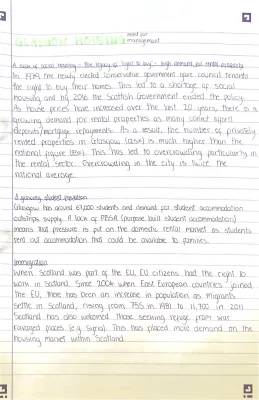 GLASGOW HOUSING need for management
A lack of social housing - the legacy of 'right to buy' - high demand for rental property
In 1979 the newly elected conservative government gave council tenants
the right to buy their homes. This led to a shortage of social
housing and by 2016 the Scottish Government ended the policy.
As house prices have increased over the last 20 years, there is a
growing demand for rental properties as many cannot afford
deposits/mortgage repayments. As a result, the number of privately
rented properties in Glasgow (20%) is much higher than the
national figure (15%). This has led to overcrowding particularly in
the rental sector. Overcrowding in the city is twice the
national average.
A growing student population
Glasgow has around 61,000 students and demand for student accommodation
outstrips supply. A lack of PBSA (purpose built student accommodation)
means that pressure is put on the domestic rental market as students
rent out accommodation that could be available to families.
Immigration
When Scotland was part of the EU, EU citizens had the right to
work in Scotland. Since 2004 when East European countries joined
the EU, there has been an increase in population as migrants
settle in Scotland, rising from 755 in 1981 to 11,700 in 2011
Scotland has also welcomed those seeking refuge from war
ravaged places (e.g Syria). This has placed more demand on the
housing market within Scotland.